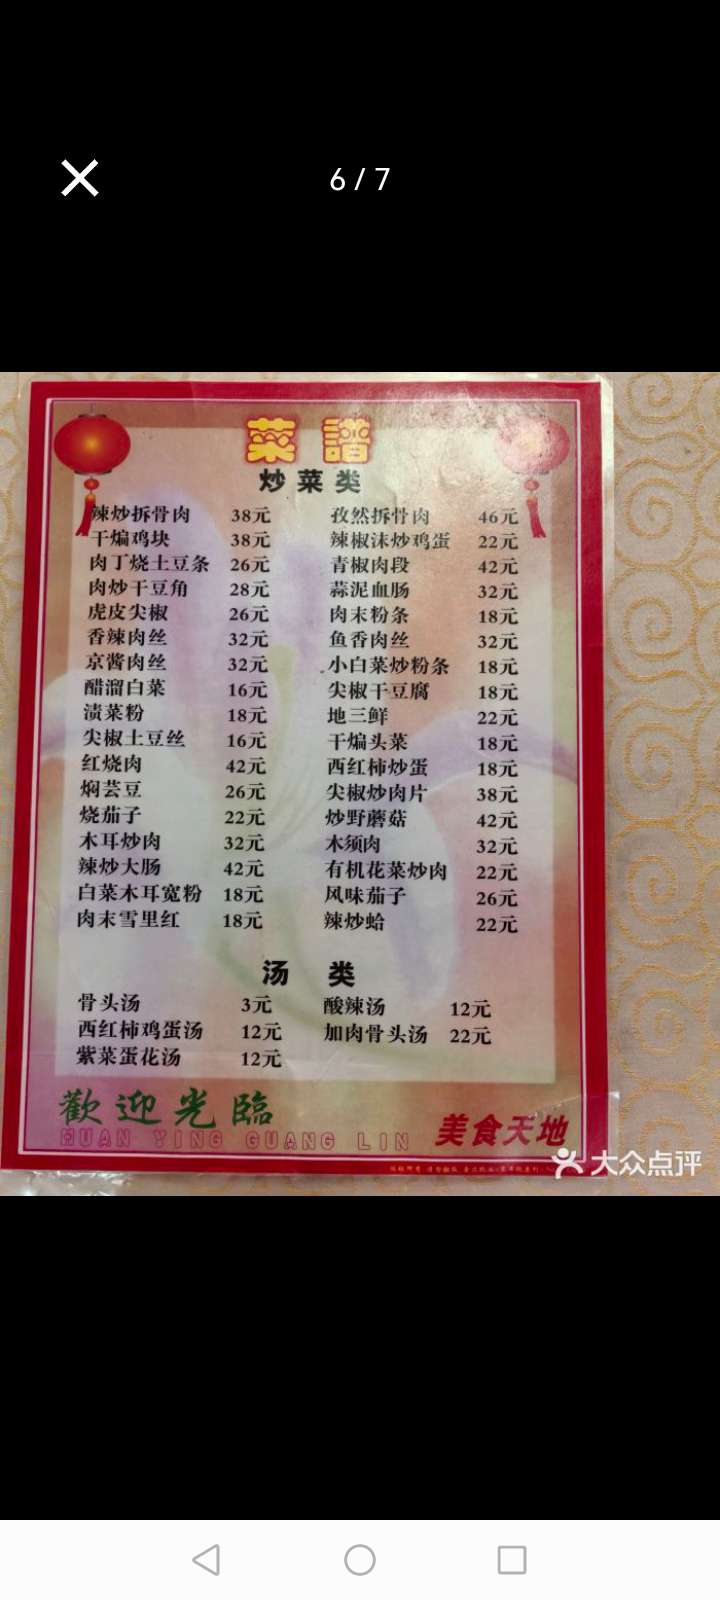 6 / 7
菜譜
炒菜类
辣炒拆骨肉 38元 孜然拆骨肉 46元
干煸鸡块 38元 辣椒沫炒鸡蛋 22元
肉丁烧土豆条 26元 青椒肉段 42元
肉炒干豆角 28元 蒜泥血肠 32元
虎皮尖椒 26元 肉末粉条 18元
香辣肉丝 32元 鱼香肉丝 32元
京酱肉丝 32元 小白菜炒粉条 18元
醋溜白菜 16元 尖椒干豆腐 18元
渍菜粉 18元 地三鲜 22元
尖椒土豆丝 16元 干煸头菜 18元
红烧肉 42元 西红柿炒蛋 18元
焖芸豆 26元 尖椒炒肉片 38元
烧茄子 22元 炒野蘑菇 42元
木耳炒肉 32元 木须肉 32元
辣炒大肠 42元 有机花菜炒肉 22元
白菜木耳宽粉 18元 风味茄子 26元
肉末雪里红 18元 辣炒蛤 22元
汤 类
骨头汤 3元 酸辣汤 12元
西红柿鸡蛋汤 12元 加肉骨头汤 22元
紫菜蛋花汤 12元
歡迎光臨
HUAN YING GUANG LIN
美食天地
大众点评